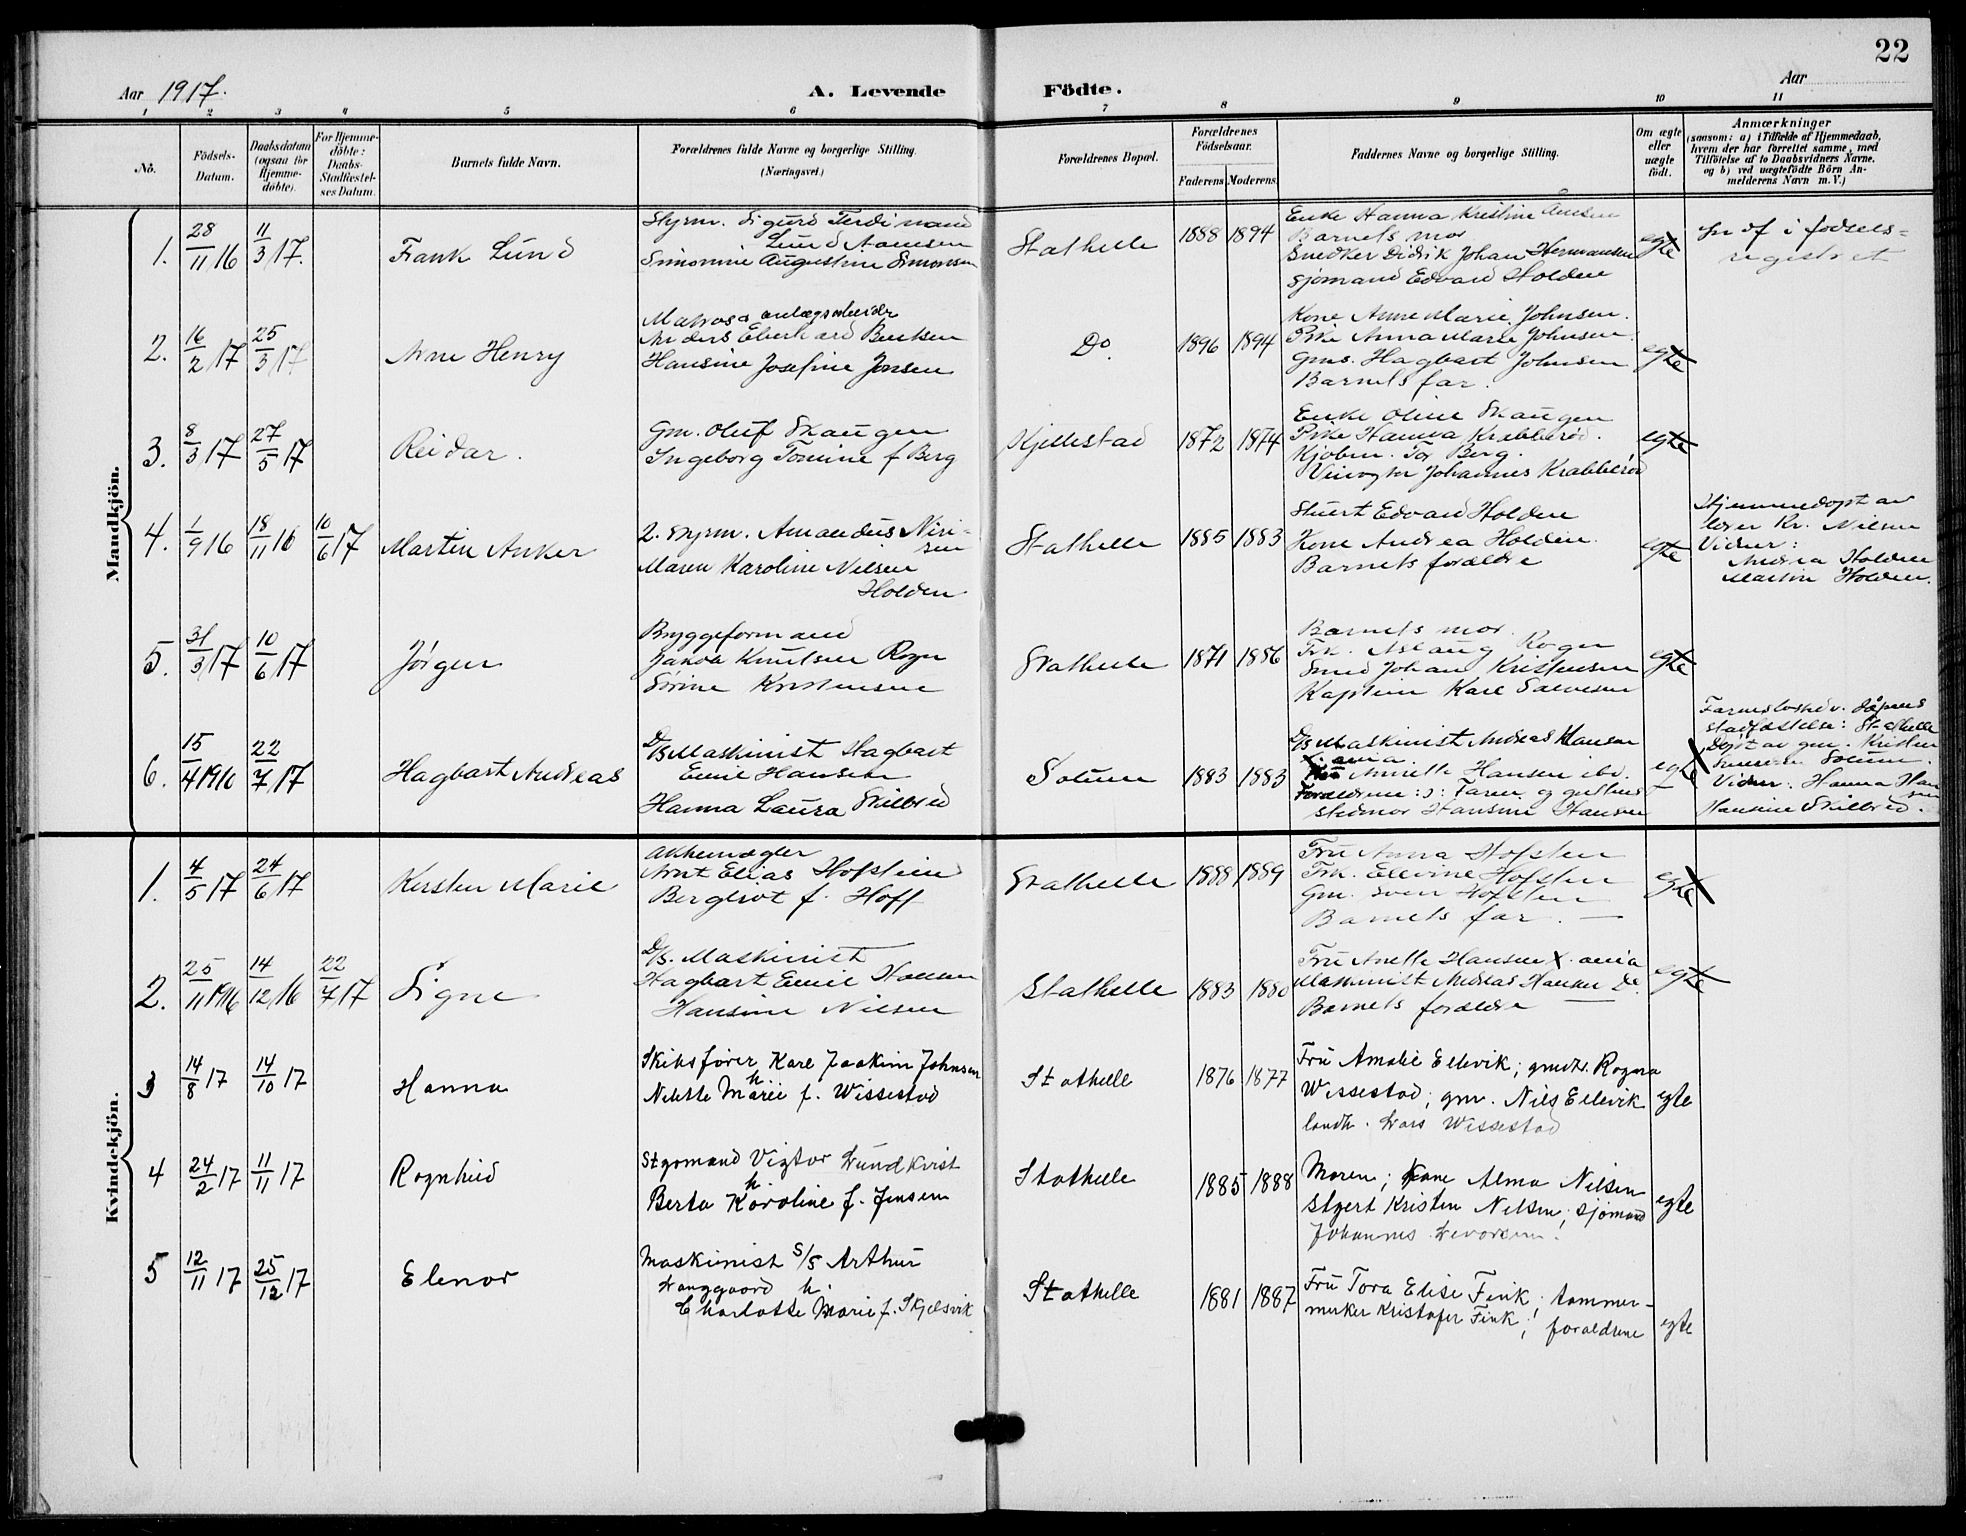 22
Aar 1917.
A. Levende Födte.
Aar
1 2 3 4 5 6 7 8 9 10 11
No.
Födsels-Datum.
Daabsdatum (ogsaa for Hjemme-döbte).
For Hjemme-döbte: Daabs-Stadfæstel-ses Datum.
Barnets fulde Navn.
Forældrenes fulde Navne og borgerlige Stilling. (Næringsvei.)
Forældrenes Bopæl.
Forældrenes Födselsaar.
Faderens Moderens
Faddernes Navne og borgerlige Stilling.
Om ægte eller uægte födt.
Anmærkninger
(saasom: a) i Tilfælde af Hjemmedaab,
hvem der har forrettet samme, med
Tilföielse af to Daabsvidners Navne,
og b) ved uægtefödte Börn An-
melderens Navn m. V.)
Mandkjön.
1. 28/11 16 11/3 17. Frank Lund
Styrm. Sigurd Ferdinand
Lund Aamsen
Simonine Augustine Simonsen
Stathelle 1888 1894
Enke Hanna Kristine
Barnets mor
Snedker Didrik Johan Hermansen
Sjømand Edvard Holden
egte
i fødsels=
registret
2. 16/2 17 25/3 17 Arne Henry
Matros & anlægsarbeider
Anders Eberhard Bentsen
Hansine Josefine Jonsen
Do. 1896 1894
Kone Anne Marie Johnsen.
Pike Anna Marie Johnsen
Gms. Hagbart Johnsen
Barnets far.
egte
3. 8/3 17 27/5 17 Reidar.
Gm. Oluf Skaugen
Ingeborg Tomine f Berg
Kjellestad 1872 1874
Enke Oline Skaugen
Pike Hanna Krabberød.
Kjøbm. Tor Berg.
Johannes Krabberød
egte
4. 1/9 16 18/11 16 10/6 17 Martin Anker
2. Styrm. Amandus Niri-
sen
Maren Karoline Nilsen
Holden
Stathelle 1885 1883
Stuert Edvard Holden
Kone Andrea Holden.
Barnets forældre
egte
Hjemmedøpt av
lærer Kr. Nilsen
Vidner:
Andrea Holden
Martin Holden.
5. 31/3 17 10/6 17 Jørgen
Bryggeformand
Jakob Knutsen Rogn
Sørine Kristensen
Stathelle 1871 1886
Barnets mor.
Frk. Aslaug Rogn
Smed Johan Kristensen
Kaptein Karl Salvesen
egte
6. 15/4 1910 22/7 17 Hagbart Andreas
D/S Maskinist Hagbart
Emil Hansen
Hanna Laura Skilbred
Solum 1883 1883
D/S Maskinist Andreas Hansen
Annette Hansen ibd.
Forældrene: Faren og
stedmor Hansine Hansen
egte
Stadfæstelse: Stathelle
Døpt av gm. Kristen
Solum.
Vidner: Hanna Han
sen
Hansine Skilbred.
Kvindekjön.
1. 4/5 17 24/6 17 Kirsten Marie
Aktiemægler
Arnt Elias Hofsten
Bergliot f. Hoff
Stathelle 1888 1889
Fru Anna Hofsten
Frk. Ellevine Hofsten
Gm. Sven Hofsten
Barnets far.
egte
2. 25/11 1916 14/12 16 22/7 17 Signe
D/S. Maskinist
Hagbart Emil Hansen
Hansine Nilsen
Stathelle 1883 1880
Fru Anette Hansen
Maskinist Andreas Hansen Do.
Barnets forældre
egte
3 14/8 17 14/10 17 Hanna
Skibsfører Karl Joakim Johnsen
h.
Nilette Marie f. Wissestad
Stathelle 1876 1877
Fru Amalie Ellevik; gmdtr. Ragna
Wissestad; gm. Nils Ellevik
landh. Lars Wissestad
egte
4 24/2 17 11/11 17 Ragnhild
Styrmand Vigtor Lundkvist
h.
Berta Karoline f. Jensen
Stathelle 1885 1888
Moren; kone Alma Nilsen
Styert Kristen Nilsen; sjømand
Johannes
egte
5 12/11 17 25/12 17 Elenor
Maskinist S/S Arthur
Langgaard h.
Charlotte Marie f. Skjelsvik
Stathelle 1881 1887
Fru Tora Elise Fink; tømmer-
merker Kristofer Fink; forældrene
egte